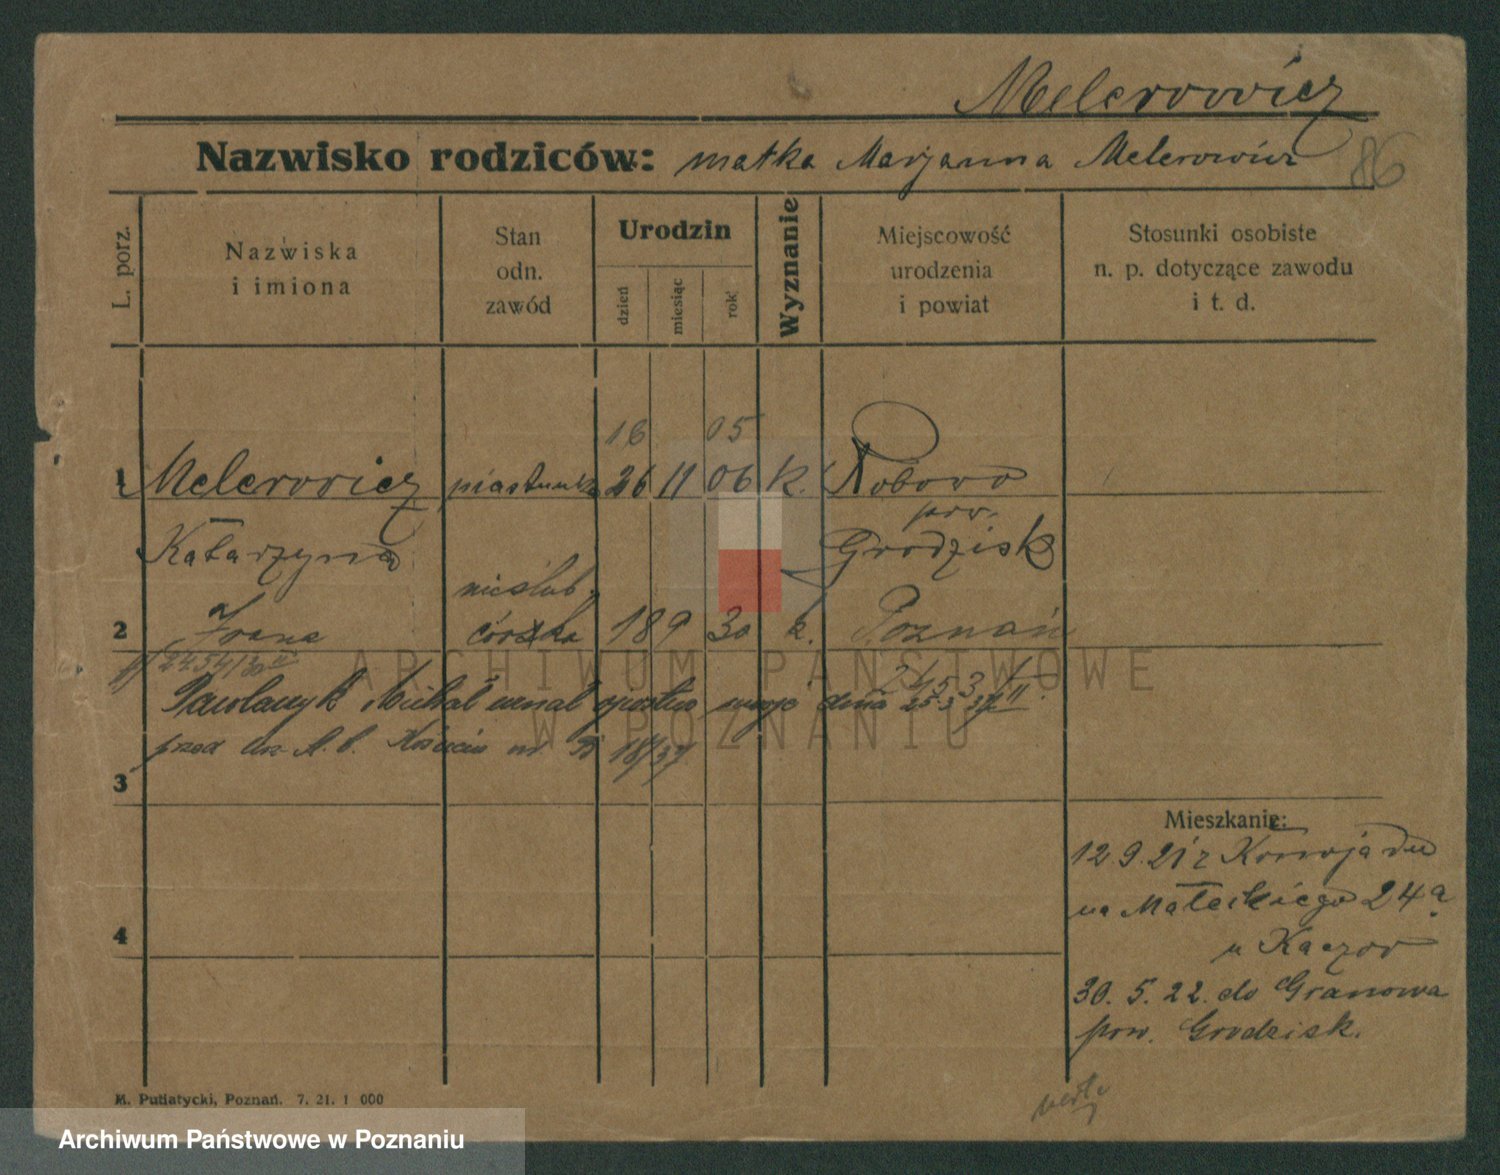 Melerowicz
Nazwisko rodziców: matka Marjanna Melerowicz
86
L. porz.
Nazwiska
i imiona
Stan
odn.
zawód
Urodzin
dzień
miesiąc
rok
Wyznanie
Miejscowość
urodzenia
i powiat
Stosunki osobiste
n. p. dotyczące zawodu
i t. d.
16 05
1 Melerowicz piastunka 26 11 06 k. Kobowo
pow.
Katarzyna Grodzisk
nieślub.
2 Irena córka 18 9 30 k. Poznań
2454/30
Pawlaczyk Michał uznał ojcostwo swoje dnia 25.3 37
przed 18/37
3
4
Mieszkanie:
12.9.21 z Konojadu
na Małeckiego 24a
u Kaczor
30.5.22. do Granowa
pow. Grodzisk.
verte
M. Putiatycki, Poznań. 7. 21. 1 000
ARCHIWUM PAŃSTWOWE
W POZNANIU
Archiwum Państwowe w Poznaniu